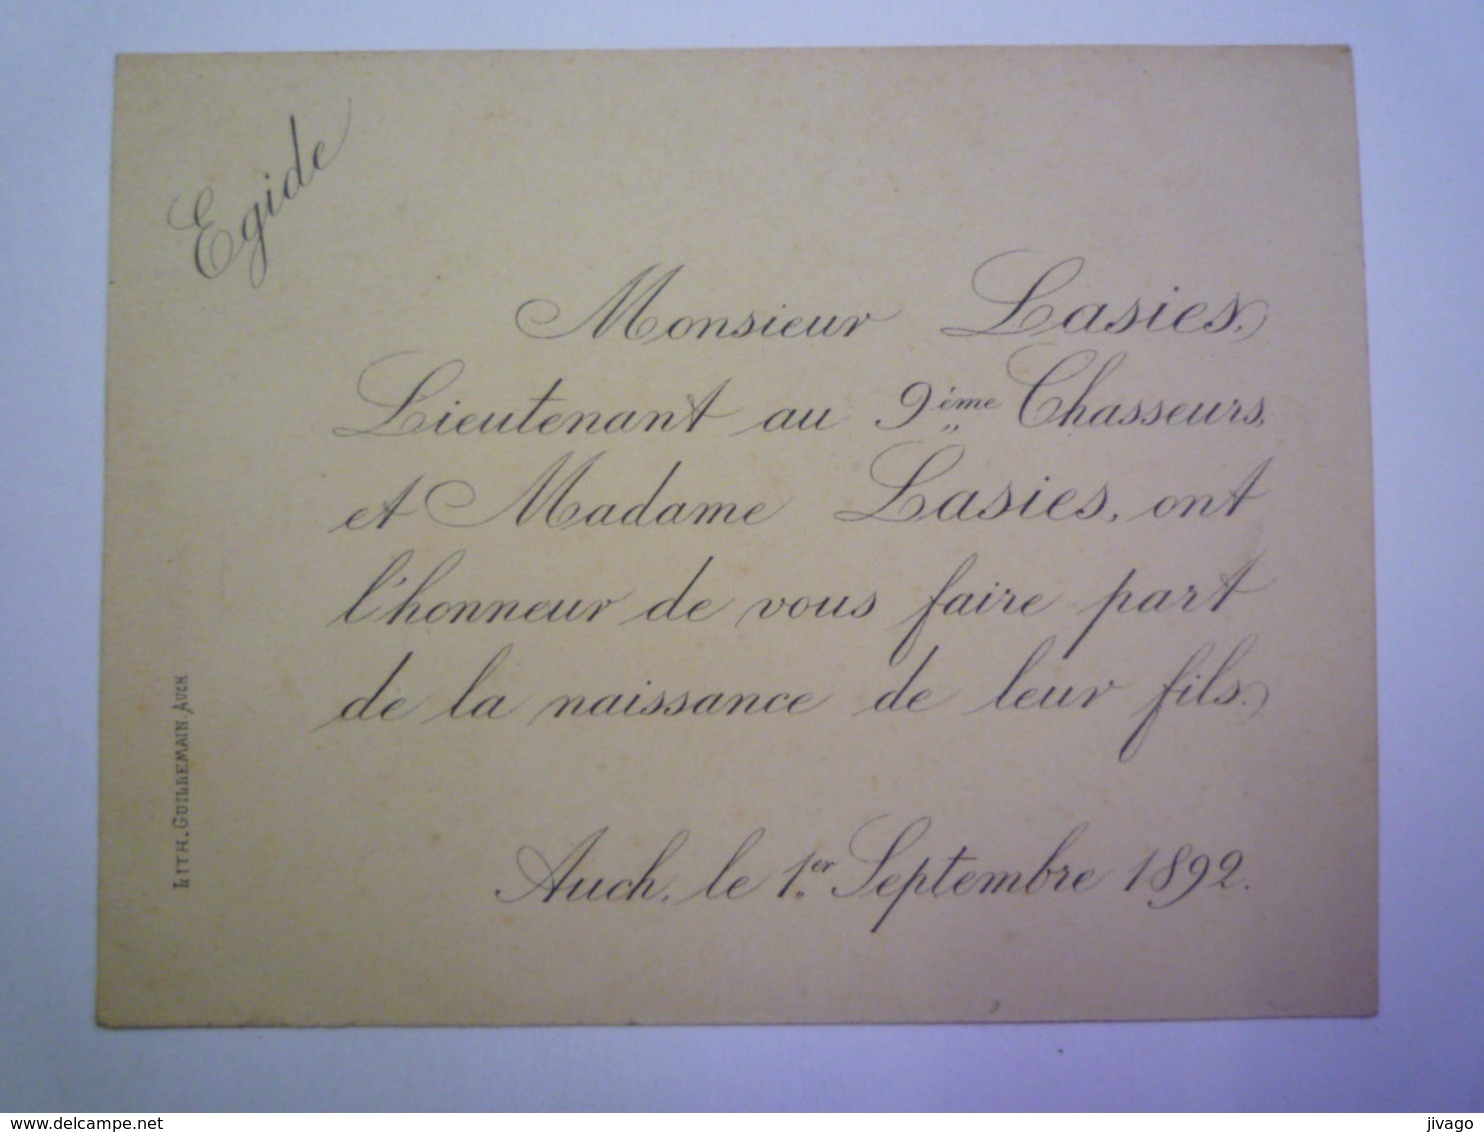 Egide
Monsieur Lasies,
Lieutenant au 9ème Chasseurs,
et Madame Lasies, ont
l'honneur de vous faire part
de la naissance de leur fils.
Auch, le 1er Septembre 1892.
LITH. GUILLEMAIN. AUCH
delcampe.net
jivago